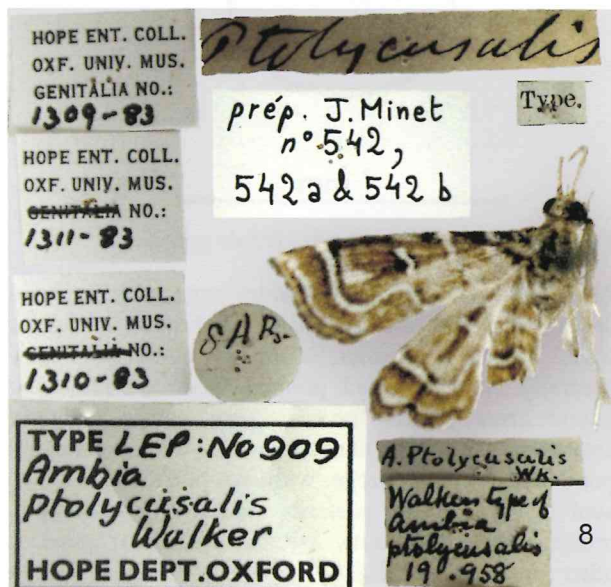 HOPE ENT. COLL.
OXF. UNIV. MUS.
GENITALIA NO.:
1309-83
Ptolycusalis
Type.
prép. J. Minet
n° 542,
542 a & 542 b
HOPE ENT. COLL.
OXF. UNIV. MUS.
GENITALIA NO.:
1311-83
HOPE ENT. COLL.
OXF. UNIV. MUS.
GENITALIA NO.:
1310-83
TYPE LEP: No 909
Ambia
ptolycusalis
Walker
HOPE DEPT. OXFORD
A. Ptolycusalis
Wk.
Walkers type of
Ambia
ptolycusalis
19 . 958
8